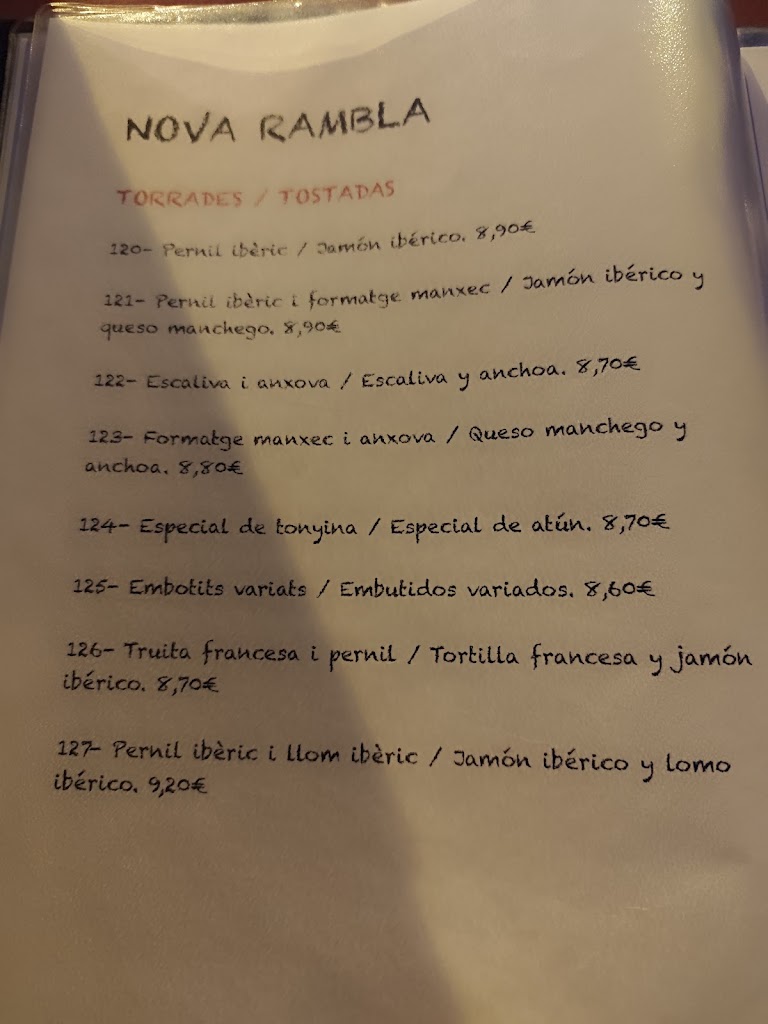 NOVA RAMBLA
TORRADES / TOSTADAS
120- Pernil ibèric / Jamón ibérico. 8,90€
121- Pernil ibèric i formatge manxec / Jamón ibérico y
queso manchego. 8,90€
122- Escaliva i anxova / Escaliva y anchoa. 8,70€
123- Formatge manxec i anxova / Queso manchego y
anchoa. 8,80€
124- Especial de tonyina / Especial de atún. 8,70€
125- Embotits variats / Embutidos variados. 8,60€
126- Truita francesa i pernil / Tortilla francesa y jamón
ibérico. 8,70€
127- Pernil ibèric i llom ibèric / Jamón ibérico y lomo
ibérico. 9,20€